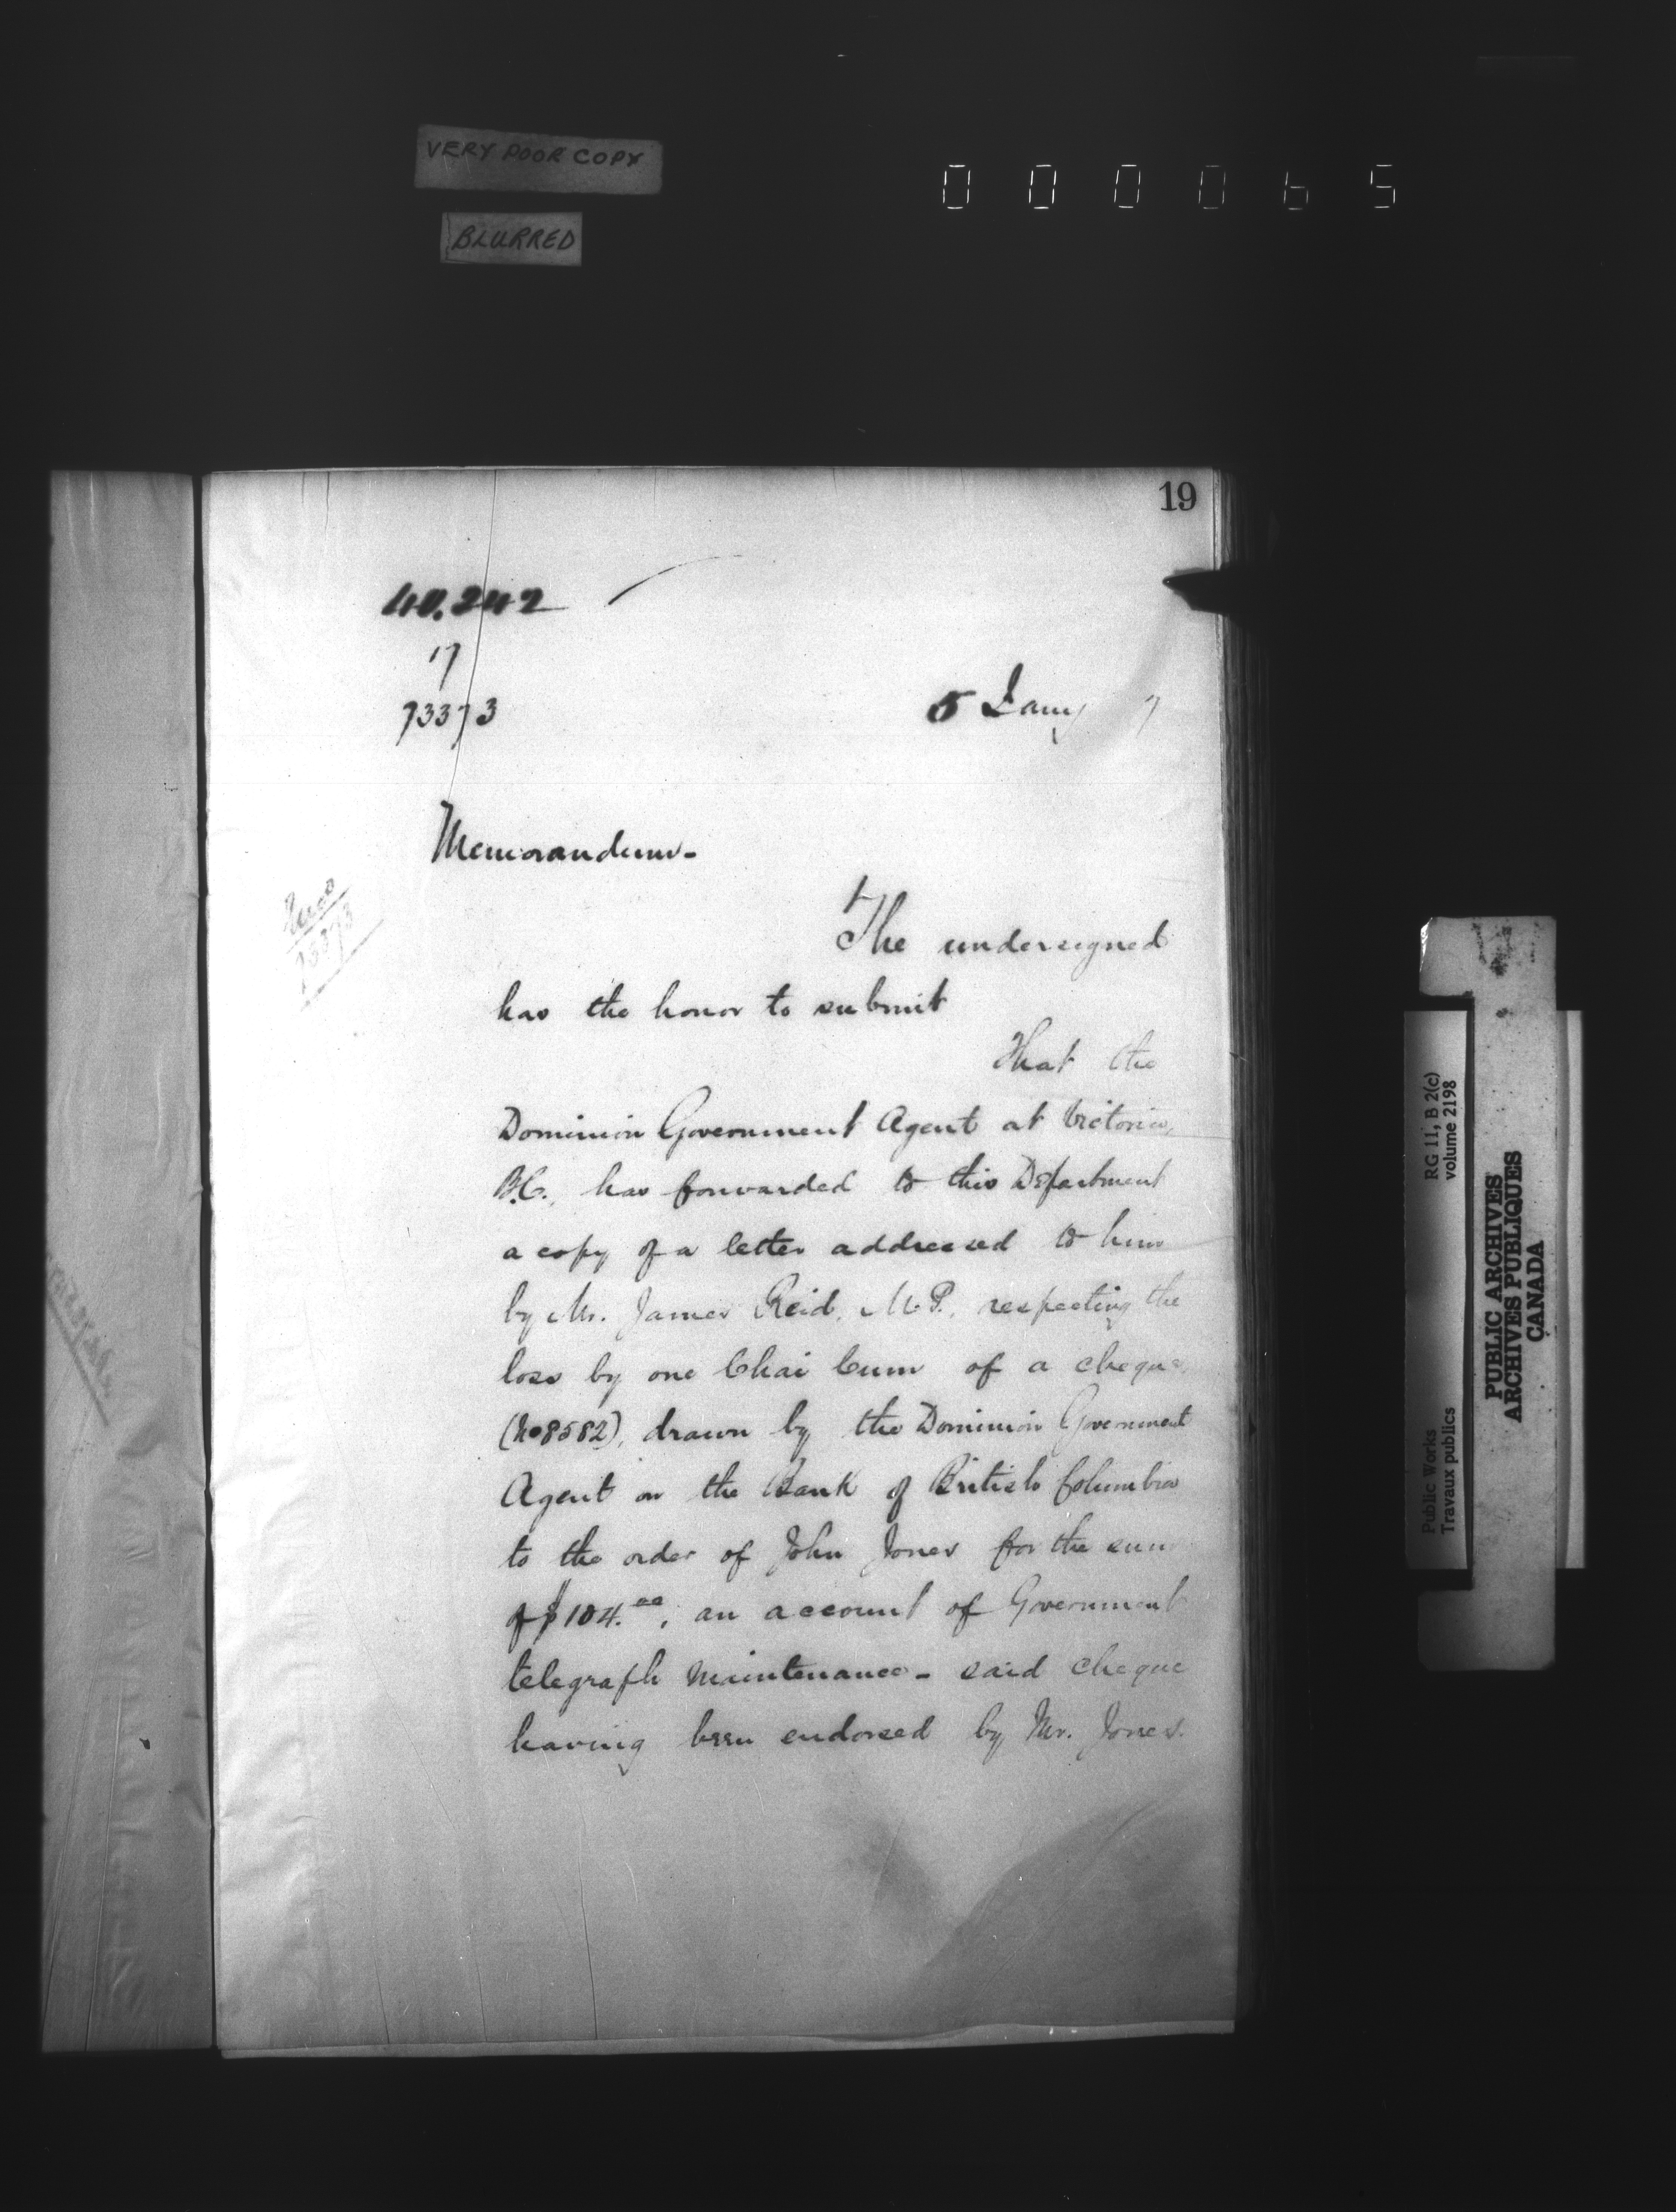 VERY POOR COPY
BLURRED
000065
19
40.242
17
73373
5 Jany 7
Memorandum-
73373
The undersigned
has the honor to submit
That the
Dominion Government Agent at Victoria,
B.C., has forwarded to this Department
a copy of a letter addressed to him
by Mr. James Reid, M.P., respecting the
loss by one Chai Cum of a cheque,
(No 8582), drawn by the Dominion Government
Agent on the Bank of British Columbia
to the order of John Jones for the sum
of $104.00, an account of Government
telegraph Maintenance - said cheque
having been endorsed by Mr. Jones.
RG 11, B 2(c)
volume 2198
Public Works
Travaux publics
PUBLIC ARCHIVES
ARCHIVES PUBLIQUES
CANADA